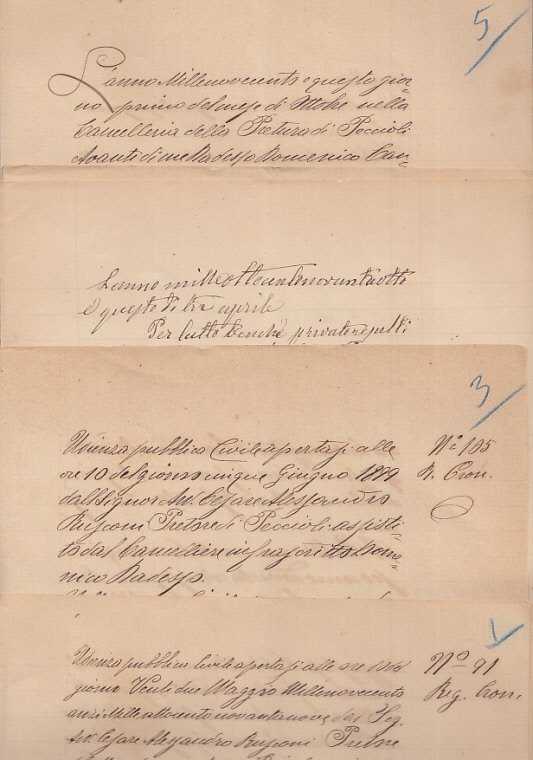 5
L'anno Millenovecento e questo gior-
no primo del mese di Ottobre nella
Cancelleria della Pretura di Peccioli
Avanti di me Radesso Domenico Can-
L'anno milleottocentonovantotto
e questo dì tre aprile
Per tutto benchè privato
3
Udienza pubblica Civile apertasi alle
ore 10 del giorno cinque Giugno 1899
dall'Signor Avv. Cesare Alessandro
Rusconi Pretore di Peccioli assisti-
to dal Cancelliere infrascritto Dome-
nico Radesso.
N° 105
R. Cron.
1
Udienza pubblica Civile apertasi alle ore
giorno Venti due Maggio Millenovecento
anzi Milleottocento novantanove dal Sig.
Avv. Cesare Alessandro Rusconi Pretore
N° 91
Reg. Cron.